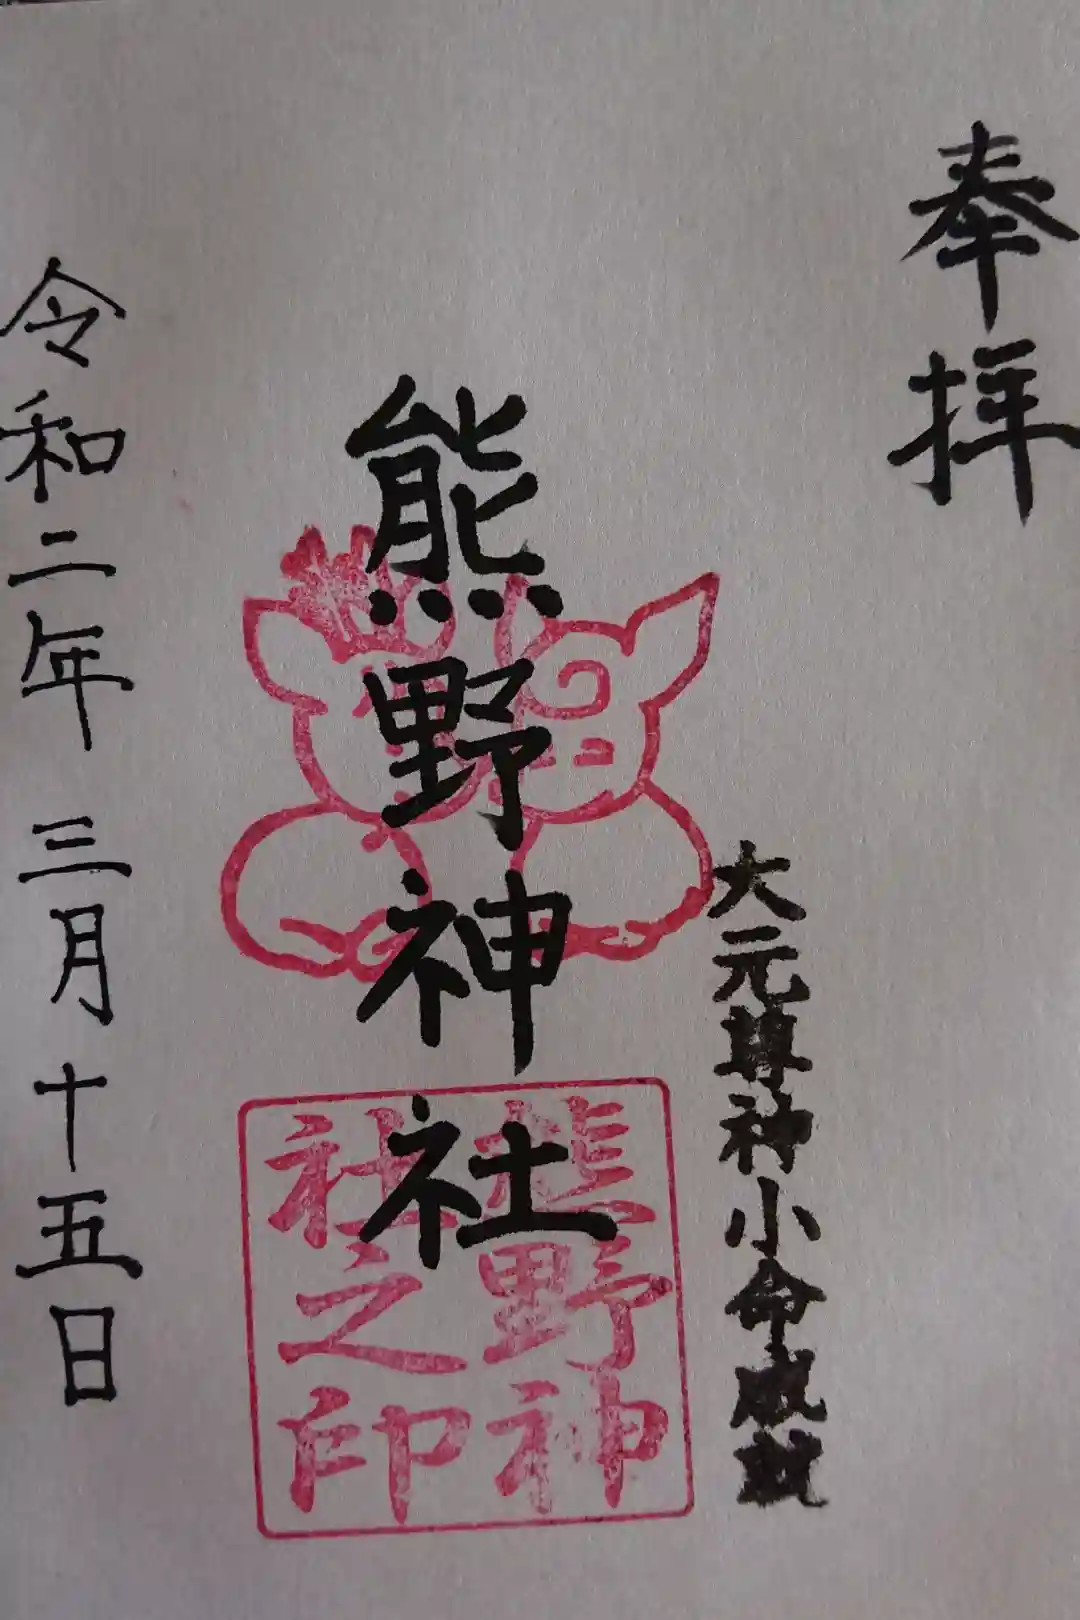 奉拝
大元尊神小命
熊野神社
熊野神
社之印
令和二年三月十五日